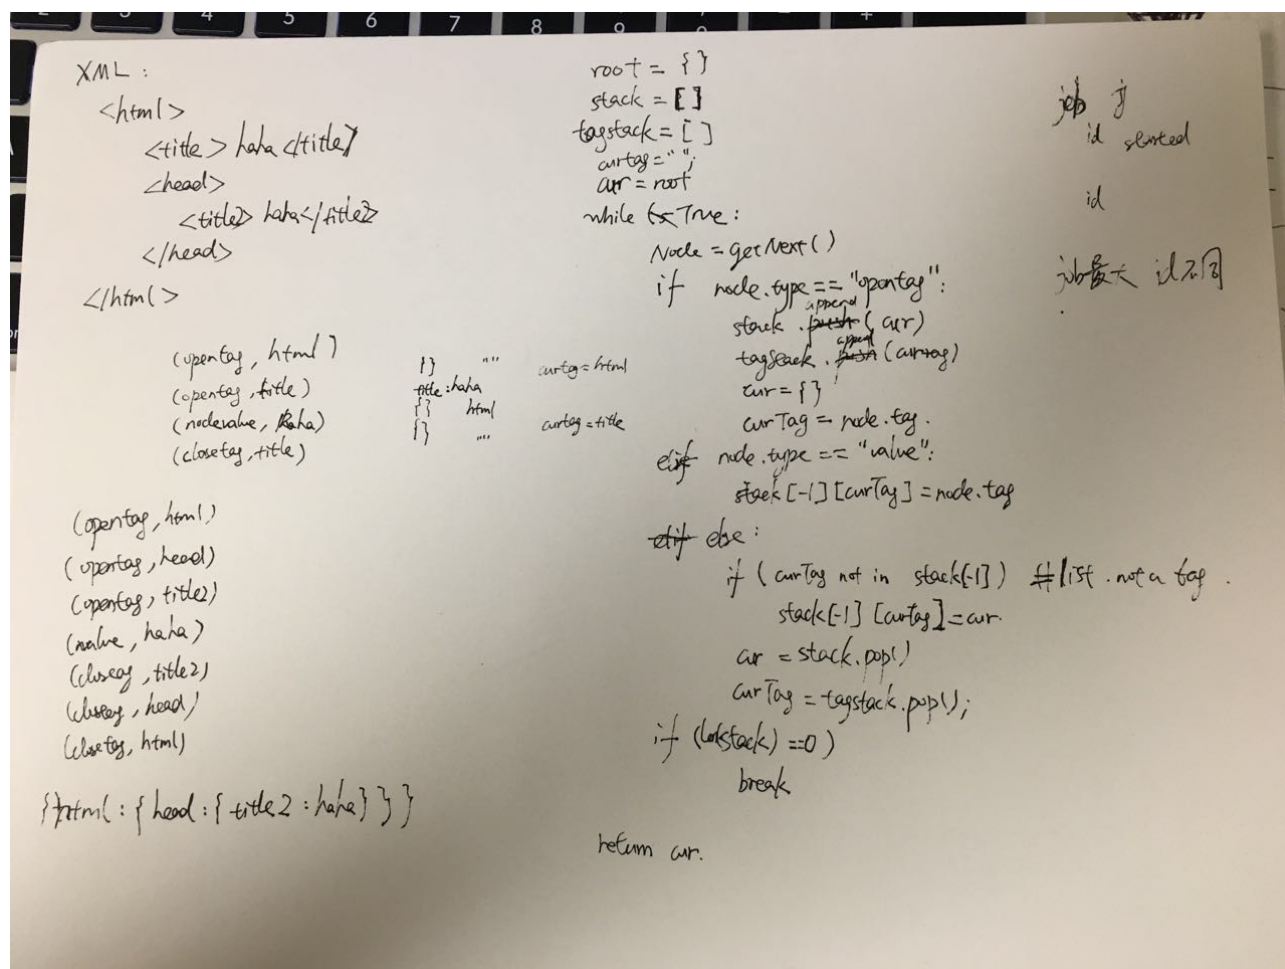 XML :
<html>
<title> haha </title>
<head>
<title2> haha </title2>
</head>
</html>
(opentag, html)
(opentag, title)
(nodevalue, haha)
(closetag, title)
{} "" curtag = html
title : haha
{} html
{} "" curtag = title
(opentag, html)
(opentag, head)
(opentag, title2)
(nvalue, haha)
(closetag, title2)
(closetag, head)
(closetag, html)
{html : { head : { title2 : haha } } }
root = { }
stack = [ ]
tagstack = [ ]
curtag = " ";
cur = root
while True :
Node = getNext ( )
if node.type == "opentag" :
stack . append ( cur )
tagstack . append ( curtag )
cur = { }
curTag = node.tag .
elif node.type == "value" :
stack [-1] [curTag] = node.tag
else :
if ( curTag not in stack[-1] ) # list . not a tag .
stack[-1] [curTag] = cur.
cur = stack.pop( )
curTag = tagstack.pop( );
if ( stack) == 0 )
break
return cur.
job j
id started
id
job最大 id不同
4 5 6 7 8 9